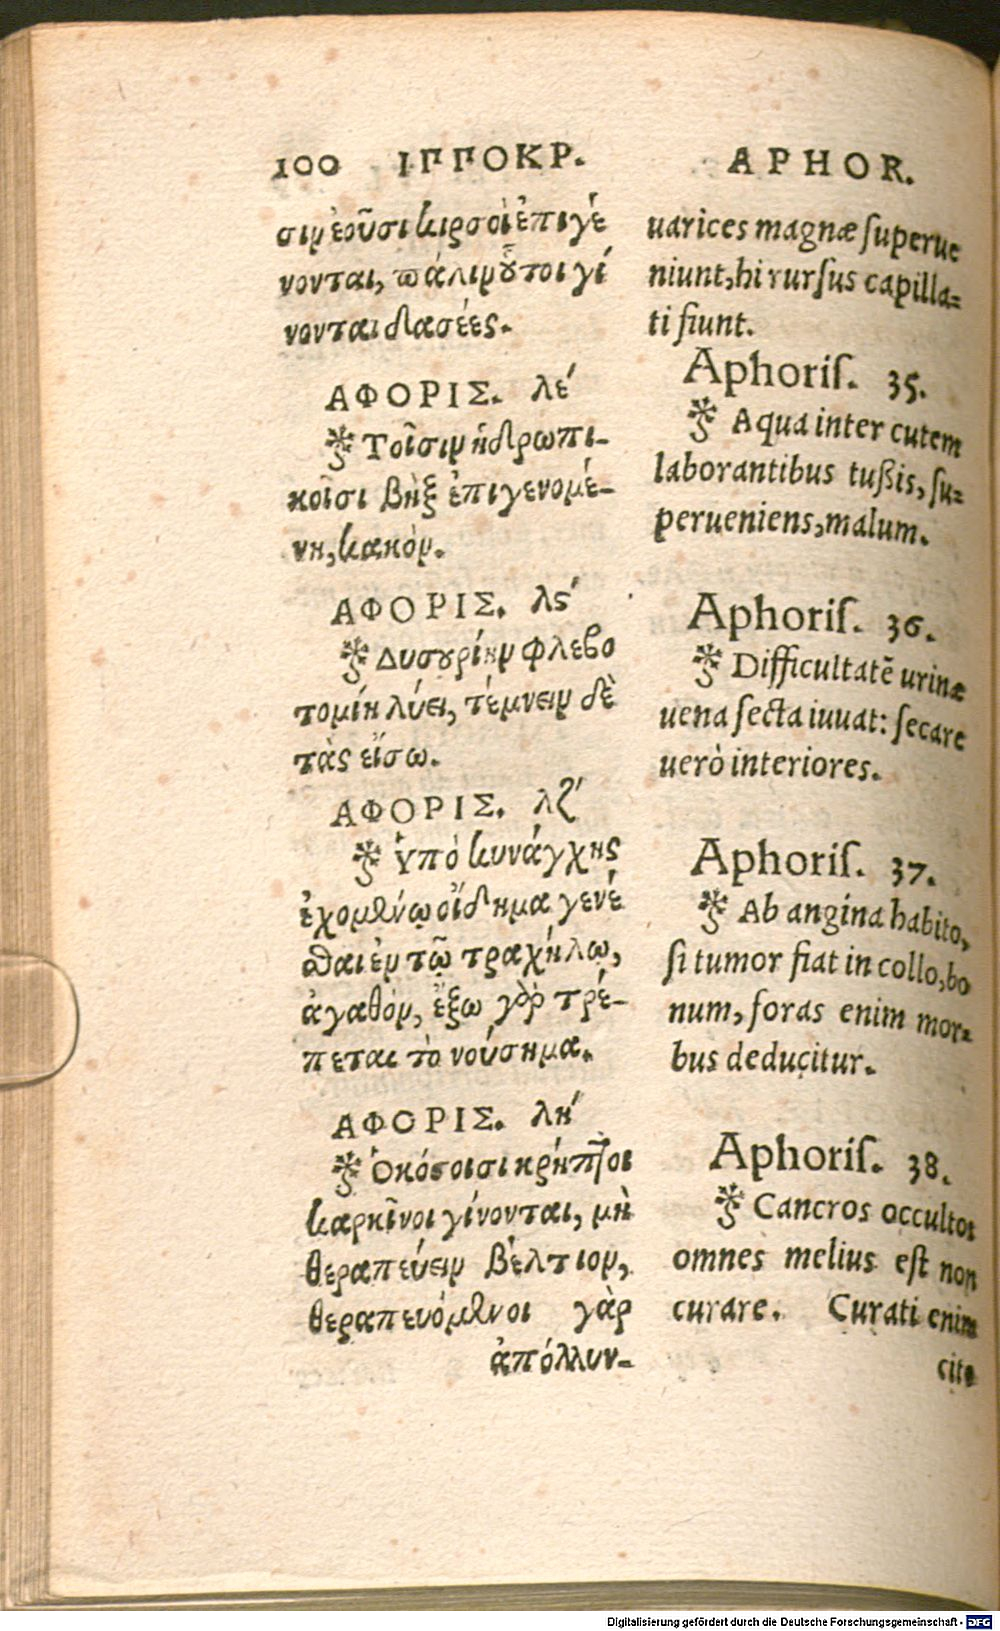 100 ΙΠΠΟΚΡ.
σιν ἐοῦσι κιρσοὶ ἐπιγέ
νονται, πάλιν οὗτοι γί
νονται δασέες.
ΑΦΟΡΙΣ. λέ
Τοῖσιν ὑδρωπι-
κοῖσι βὴξ ἐπιγενομέ-
νη, κακόν.
ΑΦΟΡΙΣ. λς΄
Δυσουρίην φλεβο
τομίη λύει, τέμνειν δὲ
τὰς εἴσω.
ΑΦΟΡΙΣ. λζ΄
Ὑπὸ κυνάγχης
ἐχομένῳ οἴδημα γενέ
σθαι ἐν τῷ τραχήλῳ,
ἀγαθόν, ἔξω γὰρ τρέ-
πεται τὸ νούσημα.
ΑΦΟΡΙΣ. λή
Ὁκόσοισι κρηπτοὶ
καρκῖνοι γίνονται, μὴ
θεραπεύειν βέλτιον,
θεραπευόμενοι γὰρ
ἀπόλλυν-
APHOR.
uarices magnæ ſuperue
niunt, hi rurſus capilla-
ti fiunt.
Aphoriſ. 35.
Aqua inter cutem
laborantibus tußis, ſu-
perueniens, malum.
Aphoriſ. 36.
Difficultatē urinæ
uena ſecta iuuat: ſecare
uerò interiores.
Aphoriſ. 37.
Ab angina habito,
ſi tumor fiat in collo, bo
num, foras enim mor-
bus deducitur.
Aphoriſ. 38.
Cancros occultos
omnes melius eſt non
curare. Curati enim
cito
Digitalisierung gefördert durch die Deutsche Forschungsgemeinschaft - DFG